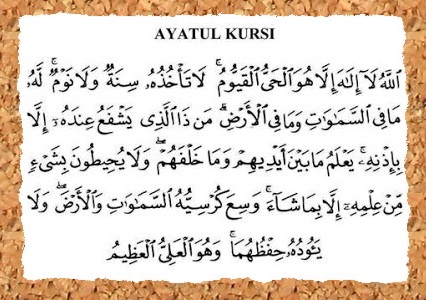 AYATUL KURSI
اللَّهُ لَآ إِلَٰهَ إِلَّا هُوَ الْحَيُّ الْقَيُّومُ ۚ لَا تَأْخُذُهُۥ سِنَةٌ وَلَا نَوْمٌ ۚ لَّهُۥ
مَا فِى السَّمَٰوَٰتِ وَمَا فِى الْأَرْضِ ۗ مَن ذَا الَّذِى يَشْفَعُ عِندَهُۥٓ إِلَّا
بِإِذْنِهِۦ ۚ يَعْلَمُ مَا بَيْنَ أَيْدِيهِمْ وَمَا خَلْفَهُمْ ۖ وَلَا يُحِيطُونَ بِشَىْءٍ
مِّنْ عِلْمِهِۦٓ إِلَّا بِمَا شَآءَ ۚ وَسِعَ كُرْسِيُّهُ السَّمَٰوَٰتِ وَالْأَرْضَ ۖ وَلَا
يَـُٔودُهُۥ حِفْظُهُمَا ۚ وَهُوَ الْعَلِىُّ الْعَظِيمُ